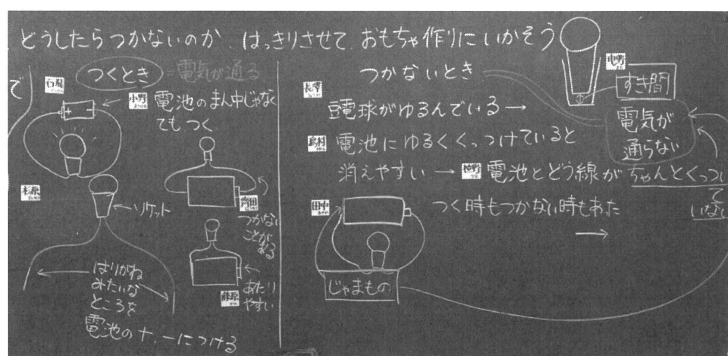 どうしたらつかないのか、はっきりさせて、おもちゃ作りにいかそう
で
つくとき = 電気が通る
石堀
小野
電池のまん中じゃなく
てもつく
ソケット
はりがね
みたいな
ところを
電池の+、-につける
つかない
ことが
ある
あたり
やすい
つかないとき
豆電球がゆるんでいる→
電池にゆるくくっつけていると
消えやすい→
電池とどう線がちゃんとくっつい
て
いない
すき間
電気が
通らない
田中
つく時もつかない時もあった
→
じゃまもの